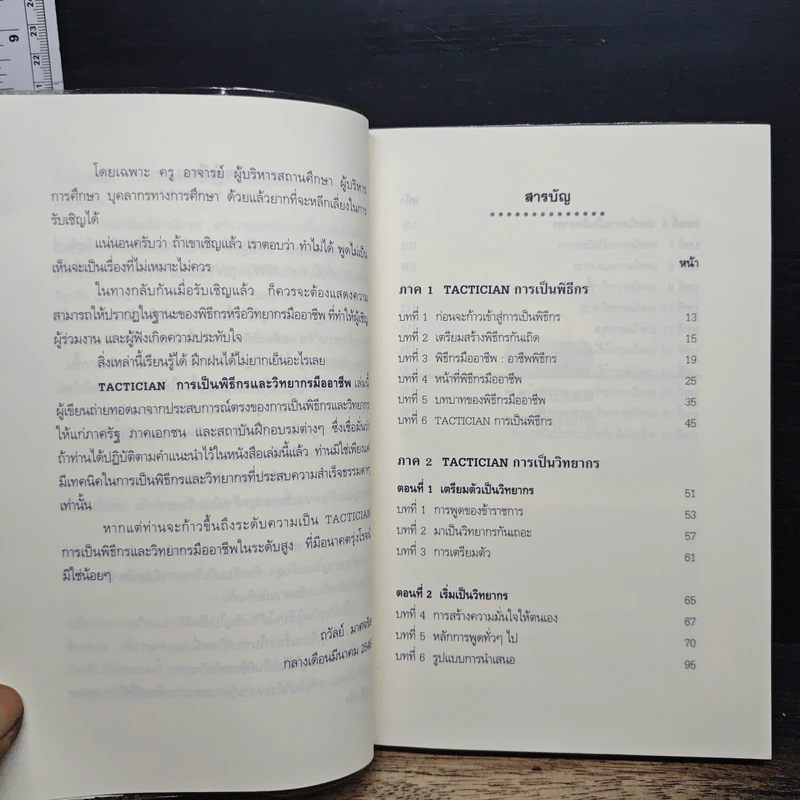 9
24
23
22
โดยเฉพาะ ครู อาจารย์ ผู้บริหารสถานศึกษา ผู้บริหาร
การศึกษา บุคลากรทางการศึกษา ด้วยแล้วยากที่จะหลีกเลี่ยงในการ
รับเชิญได้
แน่นอนครับว่า ถ้าเขาเชิญแล้ว เราตอบว่า ทำไม่ได้ พูดไม่เป็น
เห็นจะเป็นเรื่องที่ไม่เหมาะไม่ควร
ในทางกลับกันเมื่อรับเชิญแล้ว ก็ควรจะต้องแสดงความ
สามารถให้ปรากฏในฐานะของพิธีกรหรือวิทยากรมืออาชีพ ที่ทำให้ผู้เชิญ
ผู้ร่วมงาน และผู้ฟังเกิดความประทับใจ
สิ่งเหล่านี้เรียนรู้ได้ ฝึกฝนได้ไม่ยากเย็นอะไรเลย
TACTICIAN การเป็นพิธีกรและวิทยากรมืออาชีพ เล่มนี้
ผู้เขียนถ่ายทอดมาจากประสบการณ์ตรงของการเป็นพิธีกรและวิทยากร
ให้แก่ภาครัฐ ภาคเอกชน และสถาบันฝึกอบรมต่างๆ ซึ่งเชื่อมั่นว่า
ถ้าท่านได้ปฏิบัติตามคำแนะนำไว้ในหนังสือเล่มนี้แล้ว ท่านมิใช่เพียงแค่
มีเทคนิคในการเป็นพิธีกรและวิทยากรที่ประสบความสำเร็จธรรมดาๆ
เท่านั้น
หากแต่ท่านจะก้าวขึ้นถึงระดับความเป็น TACTICIAN
การเป็นพิธีกรและวิทยากรมืออาชีพในระดับสูง ที่มีอนาคตรุ่งโรจน์
มิใช่น้อยๆ
ถวัลย์ มาศจรัส
กลางเดือนมีนาคม
สารบัญ
หน้า
ภาค 1 TACTICIAN การเป็นพิธีกร
บทที่ 1 ก่อนจะก้าวเข้าสู่การเป็นพิธีกร 13
บทที่ 2 เตรียมสร้างพิธีกรกันเถิด 15
บทที่ 3 พิธีกรมืออาชีพ : อาชีพพิธีกร 19
บทที่ 4 หน้าที่พิธีกรมืออาชีพ 25
บทที่ 5 บทบาทของพิธีกรมืออาชีพ 35
บทที่ 6 TACTICIAN การเป็นพิธีกร 45
ภาค 2 TACTICIAN การเป็นวิทยากร
ตอนที่ 1 เตรียมตัวเป็นวิทยากร 51
บทที่ 1 การพูดของข้าราชการ 53
บทที่ 2 มาเป็นวิทยากรกันเถอะ 57
บทที่ 3 การเตรียมตัว 61
ตอนที่ 2 เริ่มเป็นวิทยากร 65
บทที่ 4 การสร้างความมั่นใจให้ตนเอง 67
บทที่ 5 หลักการพูดทั่วๆ ไป 70
บทที่ 6 รูปแบบการนำเสนอ 95